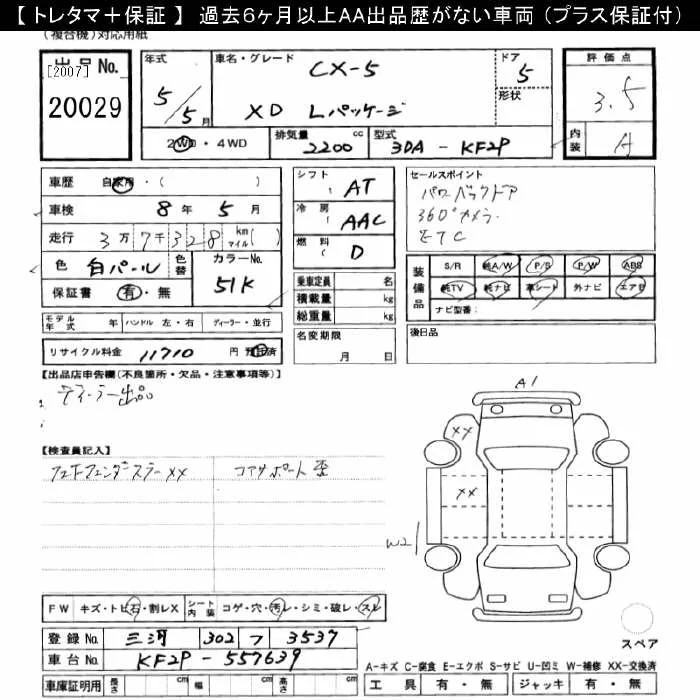 【トレタマ＋保証】 過去６ヶ月以上ＡＡ出品歴がない車両（プラス保証付）
(複合機)対応用紙
出品No.
[2007]
20029
年式
5／5月
車名・グレード
CX-5
XD Lパッケージ
ドア
5
形状
評価点
3.5
内装
A
2WD・4WD
排気量 2200 cc
型式 3DA - KF2P
車歴 自家用・( )
車検 8年 5月
走行 3万7千328 km マイル( )
色 白パール 色替
カラーNo. 51K
保証書 有・無
シフト AT
冷房 AAC
燃料 D
乗車定員 名
積載量 kg
総重量 kg
セールスポイント
パワーバックドア
360°カメラ
ETC
装備品
S/R 純A/W P/S P/W ABS
純TV 純ナビ 革シート 外ナビ エアB
ナビ型番：
モデル年式 年 ハンドル 左・右 ディーラー・並行
リサイクル料金 11710 円 預託済
名変期限
月 日
後日品
【出品店申告欄(不良箇所・欠品・注意事項等)】
ディーラー出品
【検査員記入】
コアサポート歪
A1
XX
XX
W2
FW キズ・トビ石・割レX
シート内装 コゲ・穴・汚レ・シミ・破レ・スレ
登録No. 三河 302 フ 3537
車台No. KF2P - 557639
車庫証明用 長さ cm 幅 cm 高さ cm
スペア
A-キズ C-腐食 E-エクボ S-サビ U-凹ミ W-補修 XX-交換済
工具 有・無 ジャッキ 有・無